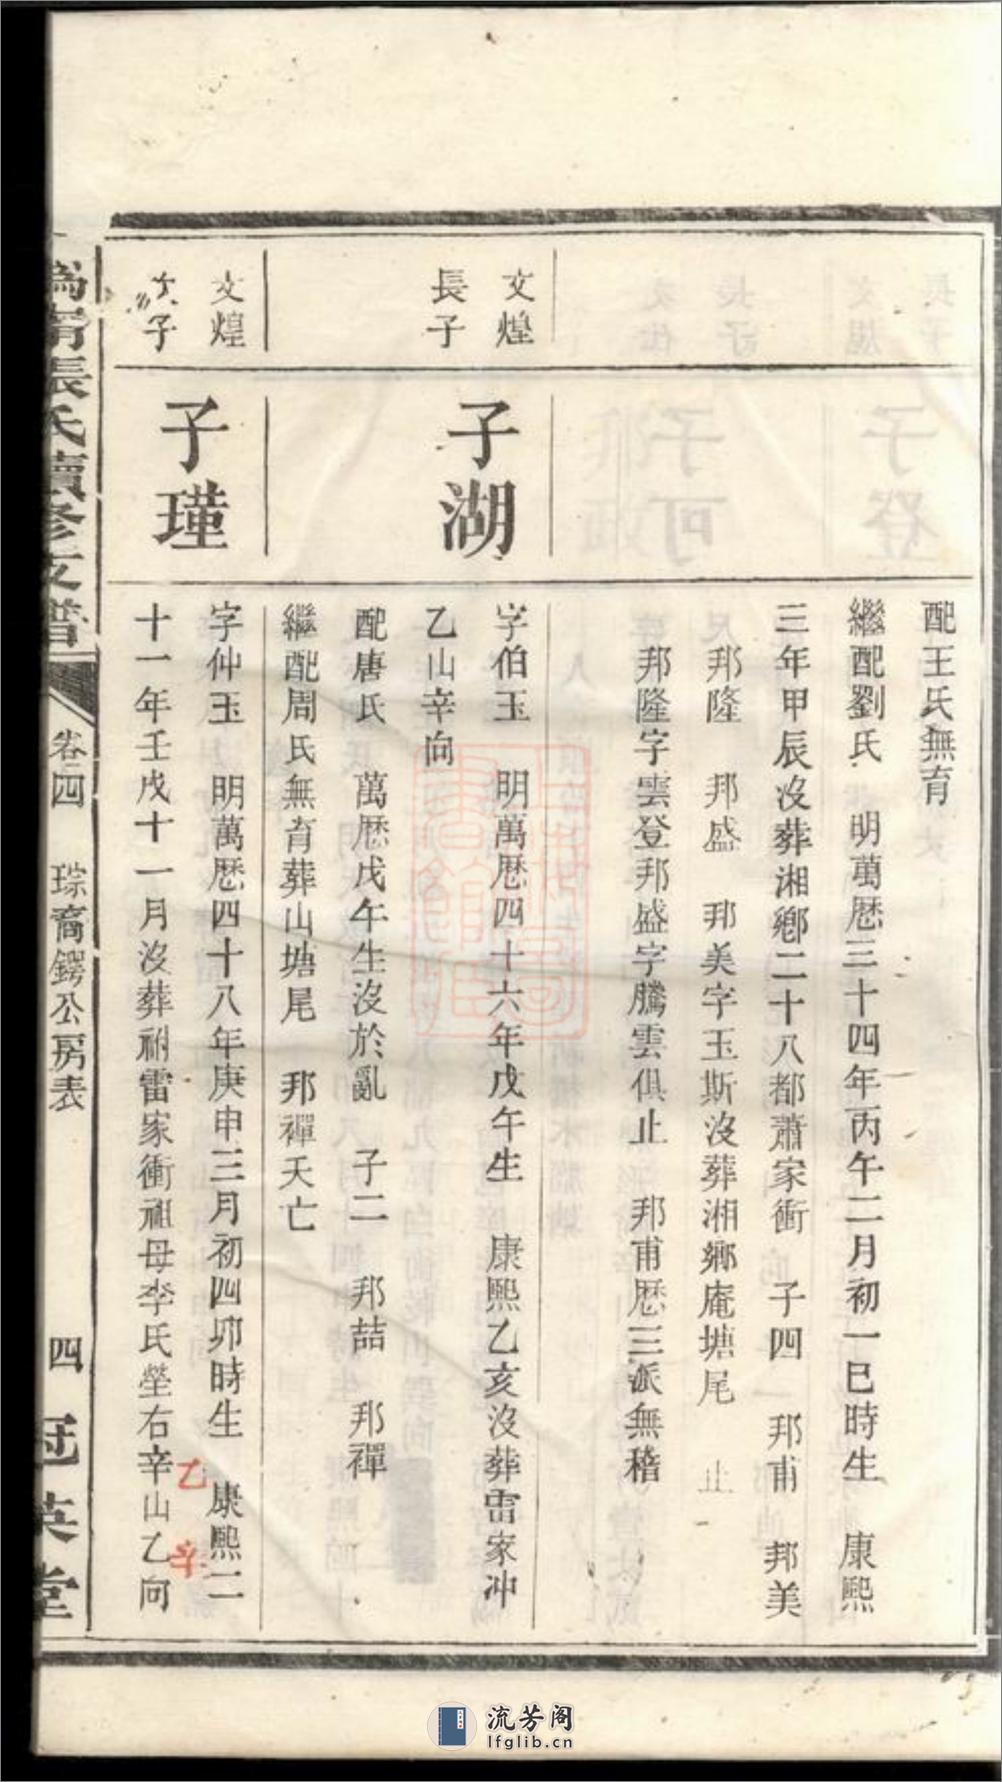 配王氏無育
繼配劉氏　明萬厯三十四年丙午二月初一巳時生　康熙
三年甲辰沒葬湘鄉二十八都蕭家衝　子四　邦甫　邦美
邦隆　邦盛　邦美字玉斯沒葬湘鄉庵塘尾　止
邦隆字雲登邦盛字騰雲俱止　邦甫厯三派無稽
文煌
長子
子湖
字伯玉　明萬厯四十六年戊午生　康熙乙亥沒葬雷家冲
乙山辛向
配唐氏　萬厯戊午生沒於亂　子二　邦喆　邦禪
繼配周氏無育葬山塘尾　邦禪夭亡
文煌
次子
子瑾
字仲玉　明萬厯四十八年庚申三月初四卯時生　康熙二
十一年壬戌十一月沒葬祔雷家衝祖母李氏塋右辛山乙向
乙
辛
溈甯張氏續修支譜
卷四　琮裔鍔公房表　四
冠英堂
流芳阁
lfglib.cn